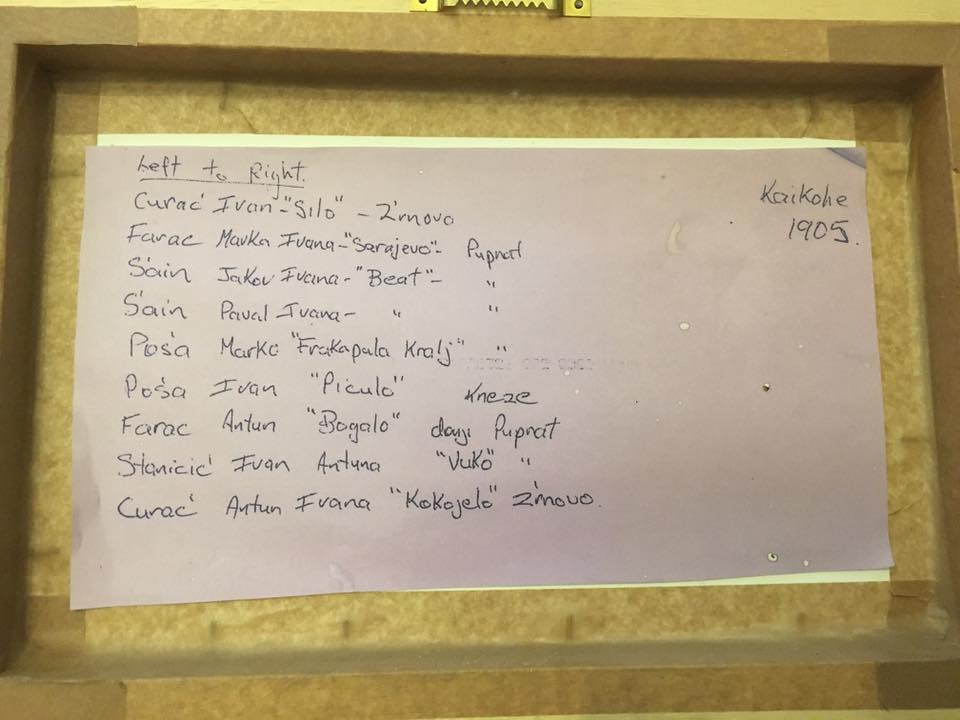 Left to Right.
Kaikohe
1905.
Curać Ivan - "Silo" - Žrnovo
Farac Marka Ivana - "Sarajevo" - Pupnat
Śain Jakov Ivana - "Beat" - "
Śain Paval Ivana - " "
Pośa Marko "Frakapala Kralj" "
Pośa Ivan "Piculo" Kneze
Farac Antun "Bogalo" donji Pupnat
Stanicić Ivan Antuna "Vuko" "
Curać Antun Ivana "Kokojelo" Žrnovo.